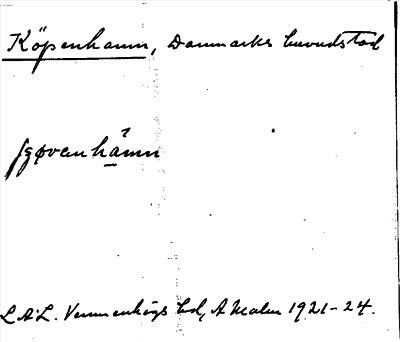 Köpenhamn, Danmarks huvudstad
fgøvenhámn
L.A:L. Vemmenhögs hd, A Malm 1921-24.